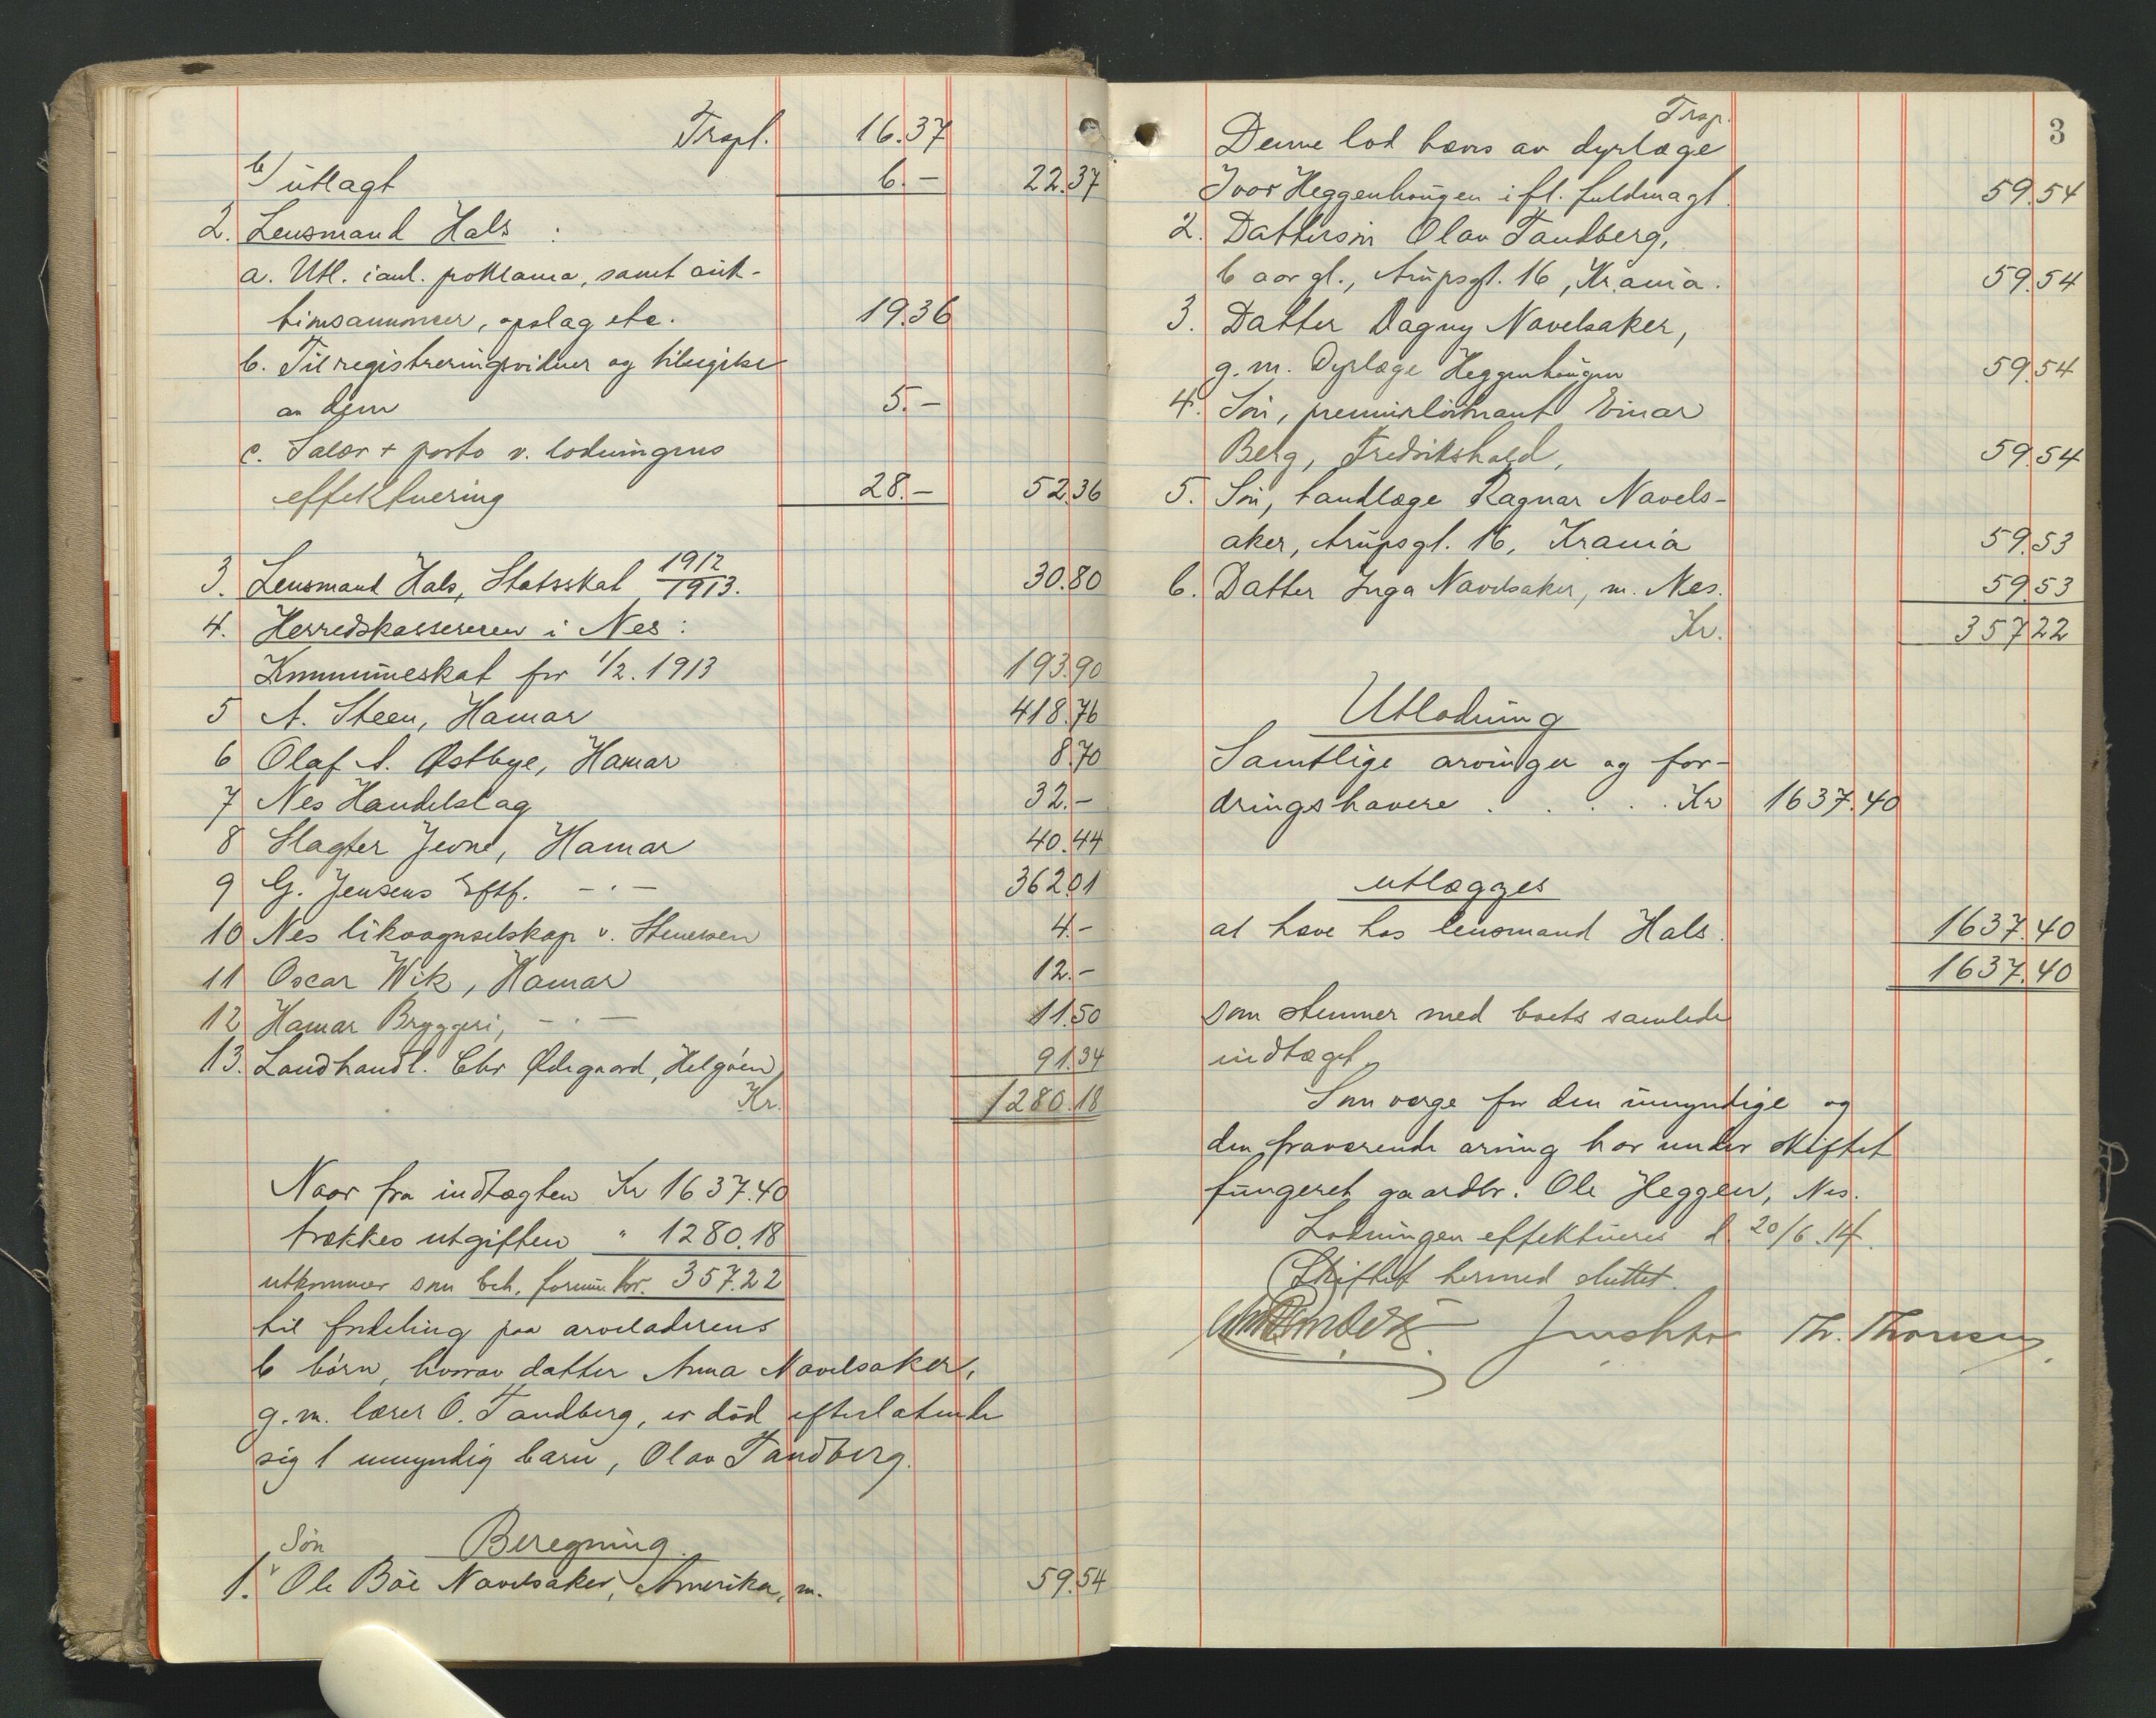 Trspt. 16.37
b/ utlagt 6.- 22.37
2. Lensmand Hals :
a. Utl. i anl. proklama, samt auk-
tionsannoncer, opslag etc. 19.36
b. Til registreringsvidner og tilsigelse
av dem 5.-
c. Salær + porto v. lodningens
effektuering 28.- 52.36
3. Lensmand Hals, Statsskat 1912/1913. 30.80
4. Herredskassereren i Nes :
Kommuneskat for 1/2. 1913 193.90
5 A. Steen, Hamar 418.76
6 Olaf A. Østbye, Hamar 8.70
7 Nes Handelslag 32.-
8 Slagter Jevne, Hamar 40.44
9 G. Jensens Eftf. -·- 362.01
10 Nes likvognselskap v. Stenersen 4.-
11 Oscar Wik, Hamar 12.-
12 Hamar Bryggeri, -·- 11.50
13. Landhandl. Chr Ødegaard, Helgøen 91.34
Kr. 1280.18
Naar fra indtægten Kr 1637.40
trækkes utgiften " 1280.18
utkommer som beh. formue kr. 357.22
til fordeling paa arveladerens
6 børn, hvorav datter Anna Navelsaker,
g. m. lærer O. Tandberg, er død efterlatende
sig 1 umyndig barn, Olav Tandberg.
Beregning.
Søn
1. Ole Böe Navelsaker, Amerika, m. 59.54
3
Trsp.
Denne lod hæves av dyrlæge
Ivar Heggenhougen i fl. fuldmagt. 59.54
2. Dattersøn Olav Tandberg,
6 aar gl., Arupsgt. 16, Kr.ania. 59.54
3. Datter Dagny Navelsaker,
g. m. Dyrlæge Heggenhougen 59.54
4. Søn, premierløitnant Einar
Berg, Fredrikshald, 59.54
5. Søn, tandlæge Ragnar Navels-
aker, Arupsgt. 16, Krania 59.53
6. Datter Inga Navelsaker, m. Nes. 59.53
Kr. 357.22
Utlodning
Samtlige arvinger og for-
dringshavere . . . . . Kr 1637.40
utlægges
at hæve hos lensmand Hals. 1637.40
1637.40
som stemmer med boets samlede
indtægt.
Som verge for den umyndige og
den fraværende arving har under skiftet
fungeret gaardbr. Ole Heggen, Nes.
Lodningen effektueres d. 20/6.14.
Skiftet hermed sluttet.
Th. Thoresen